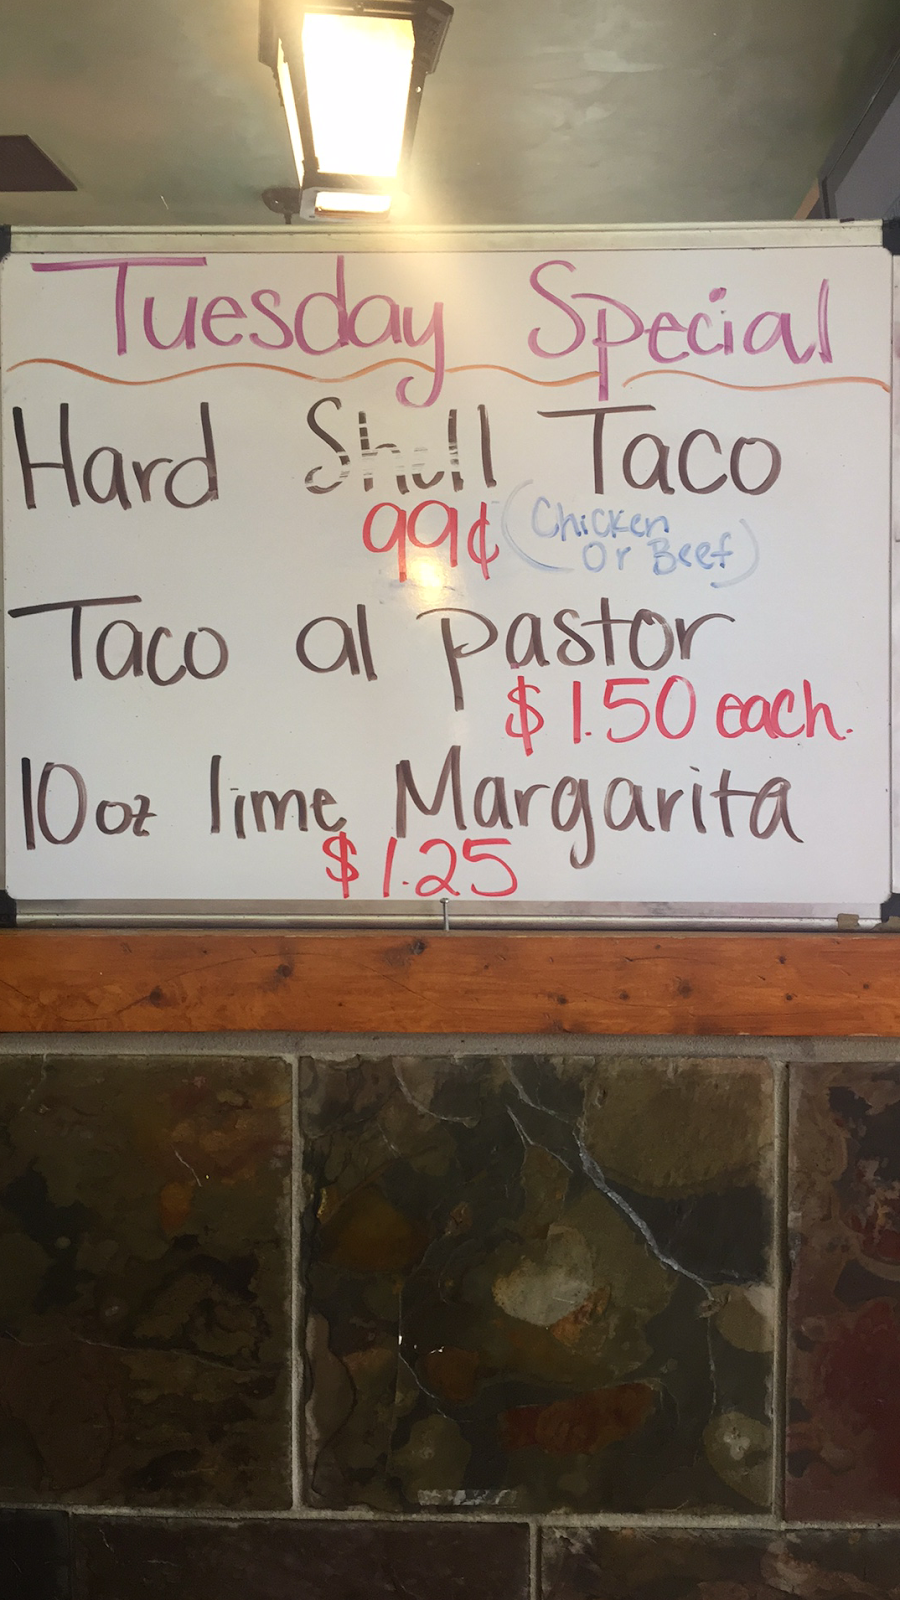 Tuesday Special
Hard Shell Taco
99¢ (Chicken
Or Beef)
Taco al pastor
$1.50 each.
10oz lime Margarita
$1.25